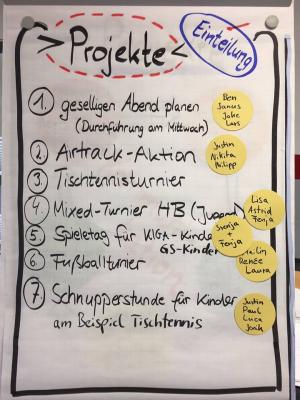 > Projekte <
Einteilung
1. geselligen Abend planen
(Durchführung am Mittwoch)
Ben
Janus
Joke
Lars
2. Airtrack-Aktion
Justin
Nikita
Philipp
3. Tischtennisturnier
4. Mixed-Turnier HB (Jugend)
Lisa
Astrid
Fenja
5. Spieletag für KIGA-Kinder
GS-Kinder
Svenja +
Fenja
6. Fußballturnier
Renée
Laura
7. Schnupperstunde für Kinder
am Beispiel Tischtennis
Justin
Paul
Luca